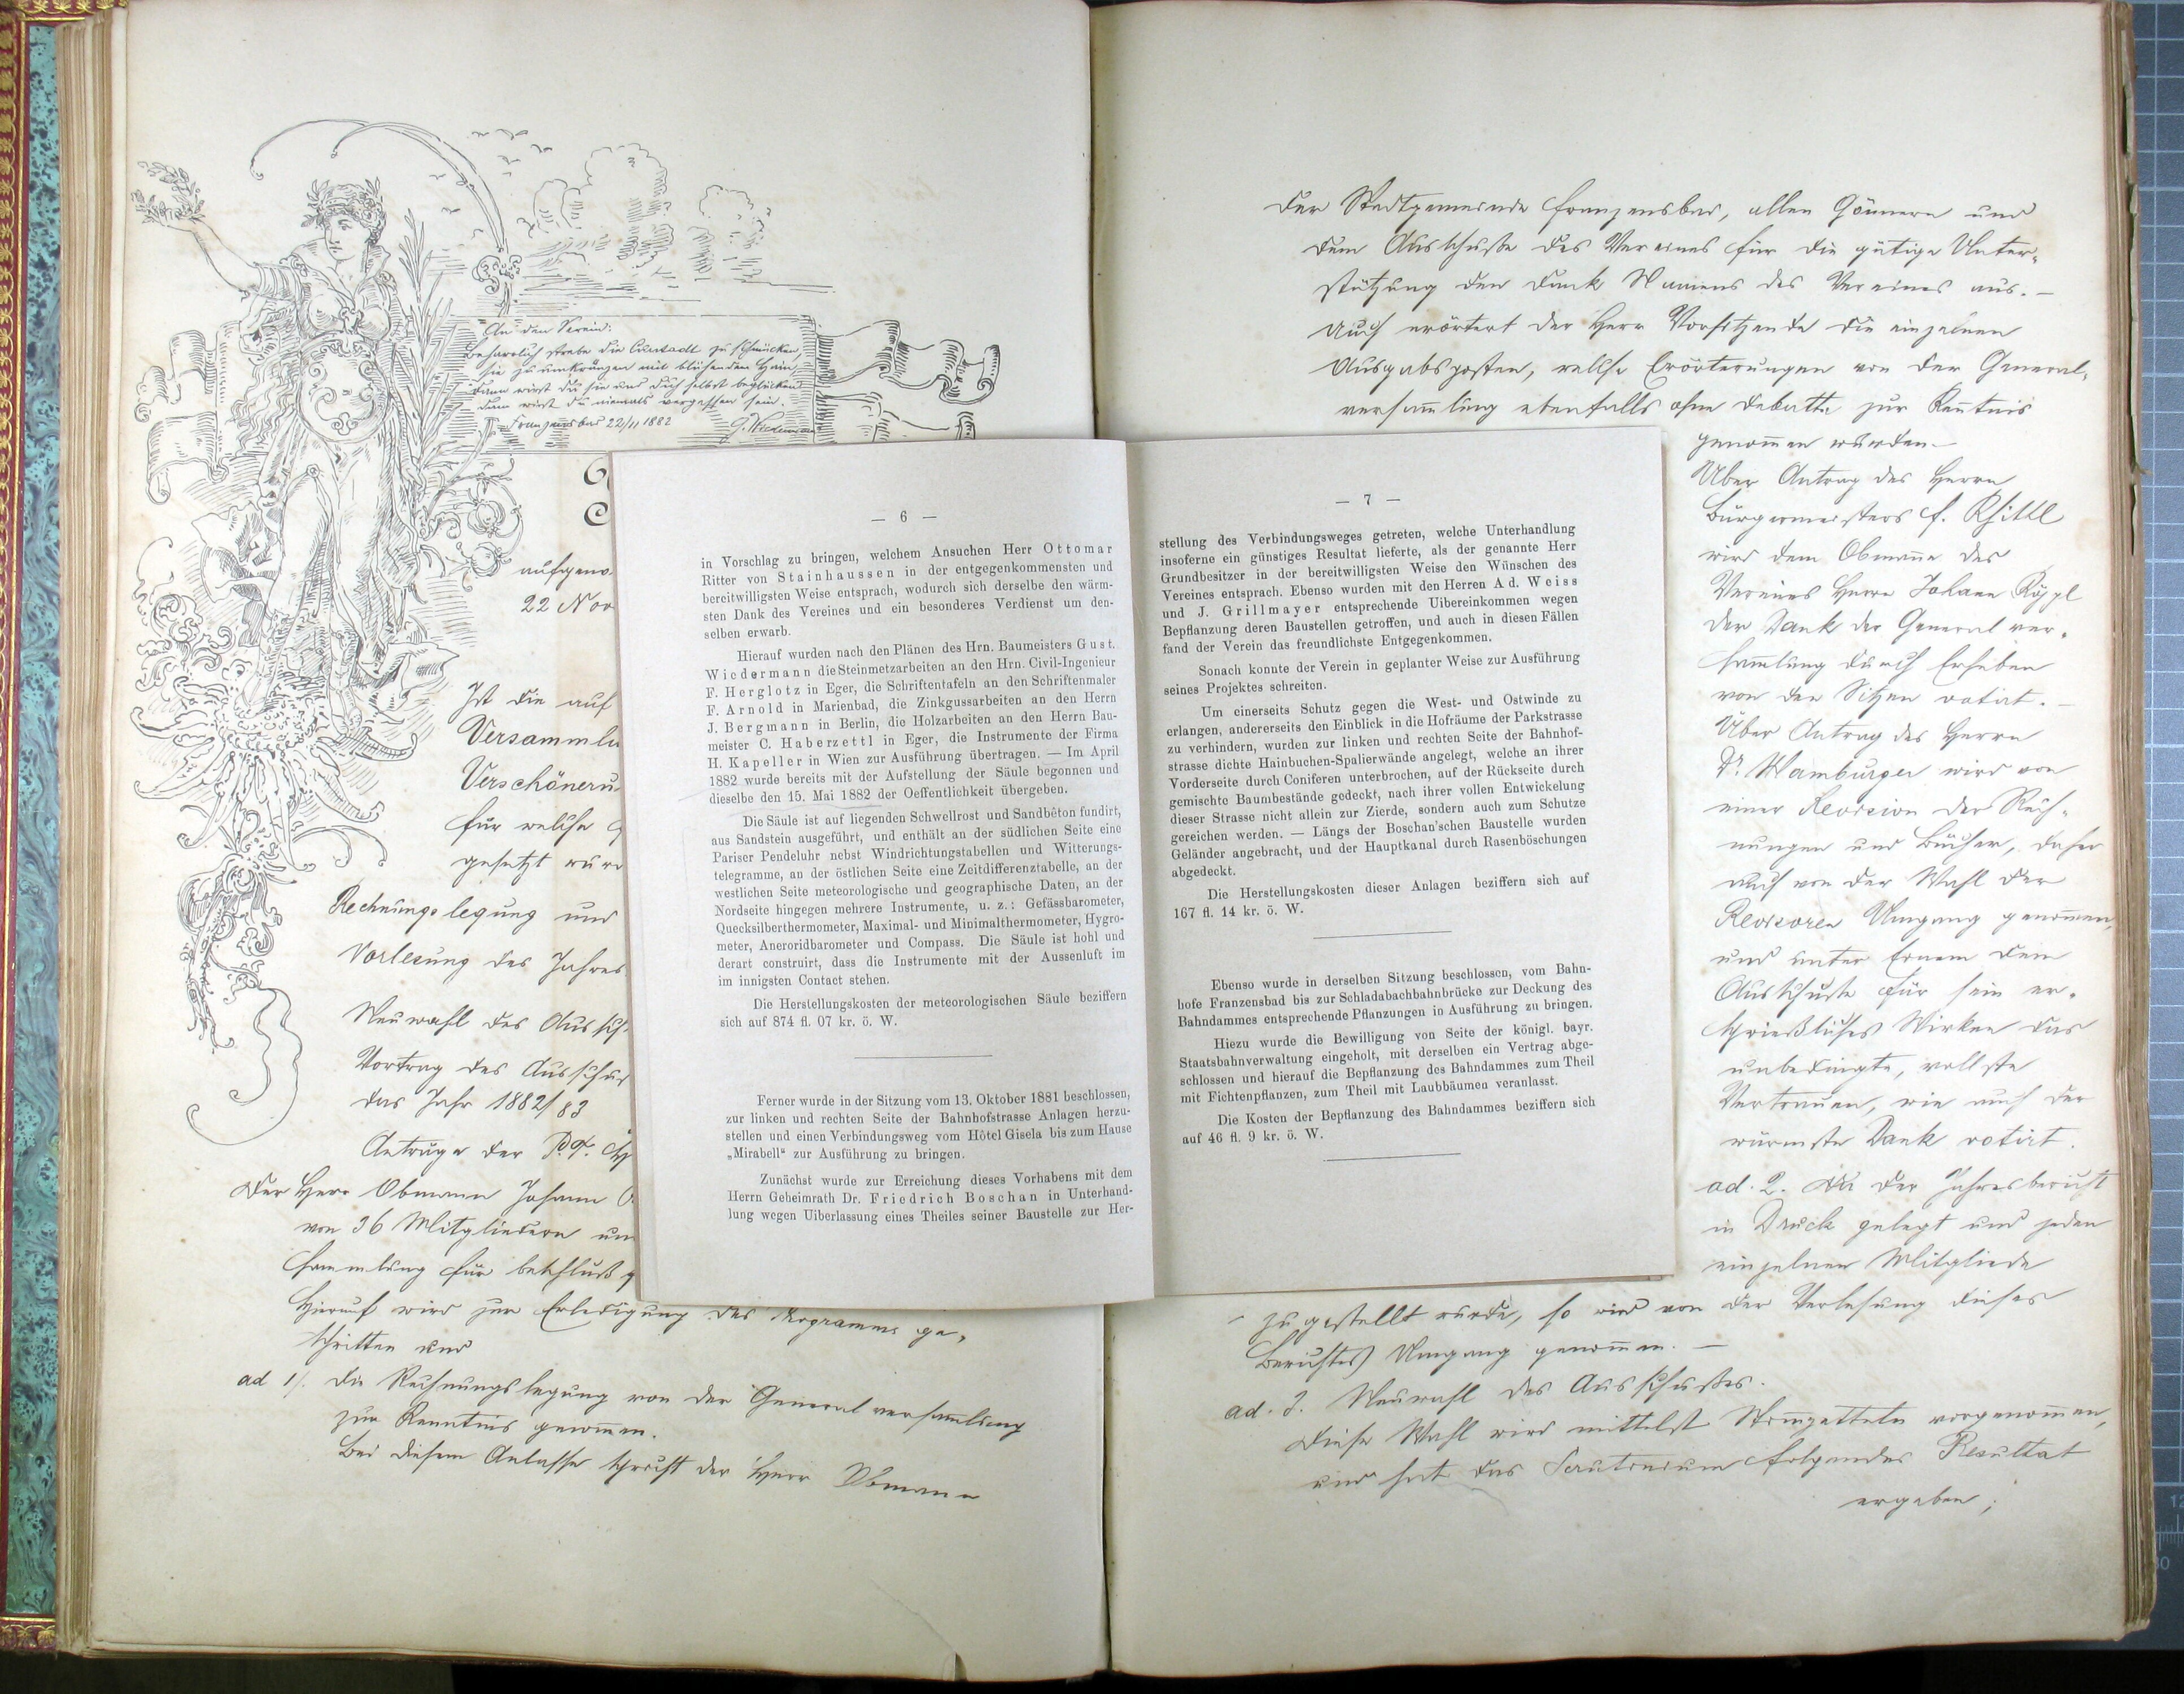 An den Verein:
Beharrlich strebe die Curstadt zu schmücken,
sie zu umkränzen mit blühendem Hain,
dann wirst du sie und dich selbst beglücken
dann wirst du niemals vergessen sein.
Franzensbad 22/11 1882 G. Wiedermann
aufgeno
22 Nov
Ist die auf
Versammlu
Verschöneru
für welche
gesetzt wur
Rechnungslegung und
Vorlesung des Jahres
Neuwahl des Aussch
Vortrag des Ausschus
das Jahr 1882/83
Anträge der P. T.
Der Herr Obmann Johann
von 36 Mitgliedern un
sammlung für beschluß
Hierauf wird zur Erledigung des Programms ge-
schritten und
ad 1/. die Rechnungslegung von der Generalversam̄lung
zur Kenntnis genom̄en.
Bei diesem Anlasse spricht der Herr Obmann
— 6 —
in Vorschlag zu bringen, welchem Ansuchen Herr Ottomar
Ritter von Stainhaussen in der entgegenkommensten und
bereitwilligsten Weise entsprach, wodurch sich derselbe den wärm-
sten Dank des Vereines und ein besonderes Verdienst um den-
selben erwarb.
Hierauf wurden nach den Plänen des Hrn. Baumeisters Gust.
Wiedermann die Steinmetzarbeiten an den Hrn. Civil-Ingenieur
F. Herglotz in Eger, die Schriftentafeln an den Schriftenmaler
F. Arnold in Marienbad, die Zinkgussarbeiten an den Herrn
J. Bergmann in Berlin, die Holzarbeiten an den Herrn Bau-
meister C. Haberzettl in Eger, die Instrumente der Firma
H. Kapeller in Wien zur Ausführung übertragen. — Im April
1882 wurde bereits mit der Aufstellung der Säule begonnen und
dieselbe den 15. Mai 1882 der Oeffentlichkeit übergeben.
Die Säule ist auf liegenden Schwellrost und Sandbêton fundirt,
aus Sandstein ausgeführt, und enthält an der südlichen Seite eine
Pariser Pendeluhr nebst Windrichtungstabellen und Witterungs-
telegramme, an der östlichen Seite eine Zeitdifferenztabelle, an der
westlichen Seite meteorologische und geographische Daten, an der
Nordseite hingegen mehrere Instrumente, u. z.: Gefässbarometer,
Quecksilberthermometer, Maximal- und Minimalthermometer, Hygro-
meter, Aneroridbarometer und Compass. Die Säule ist hohl und
derart construirt, dass die Instrumente mit der Aussenluft im
im innigsten Contact stehen.
Die Herstellungskosten der meteorologischen Säule beziffern
sich auf 874 fl. 07 kr. ö. W.
Ferner wurde in der Sitzung vom 13. Oktober 1881 beschlossen,
zur linken und rechten Seite der Bahnhofstrasse Anlagen herzu-
stellen und einen Verbindungsweg vom Hôtel Gisela bis zum Hause
„Mirabell“ zur Ausführung zu bringen.
Zunächst wurde zur Erreichung dieses Vorhabens mit dem
Herrn Geheimrath Dr. Friedrich Boschan in Unterhand-
lung wegen Uiberlassung eines Theiles seiner Baustelle zur Her-
— 7 —
stellung des Verbindungsweges getreten, welche Unterhandlung
insoferne ein günstiges Resultat lieferte, als der genannte Herr
Grundbesitzer in der bereitwilligsten Weise den Wünschen des
Vereines entsprach. Ebenso wurden mit den Herren Ad. Weiss
und J. Grillmayer entsprechende Uibereinkommen wegen
Bepflanzung deren Baustellen getroffen, und auch in diesen Fällen
fand der Verein das freundlichste Entgegenkommen.
Sonach konnte der Verein in geplanter Weise zur Ausführung
seines Projektes schreiten.
Um einerseits Schutz gegen die West- und Ostwinde zu
erlangen, andererseits den Einblick in die Hofräume der Parkstrasse
zu verhindern, wurden zur linken und rechten Seite der Bahnhof-
strasse dichte Hainbuchen-Spalierwände angelegt, welche an ihrer
Vorderseite durch Coniferen unterbrochen, auf der Rückseite durch
gemischte Baumbestände gedeckt, nach ihrer vollen Entwickelung
dieser Strasse nicht allein zur Zierde, sondern auch zum Schutze
gereichen werden. — Längs der Boschan'schen Baustelle wurden
Geländer angebracht, und der Hauptkanal durch Rasenböschungen
abgedeckt.
Die Herstellungskosten dieser Anlagen beziffern sich auf
167 fl. 14 kr. ö. W.
Ebenso wurde in derselben Sitzung beschlossen, vom Bahn-
hofe Franzensbad bis zur Schladabachbahnbrücke zur Deckung des
Bahndammes entsprechende Pflanzungen in Ausführung zu bringen.
Hiezu wurde die Bewilligung von Seite der königl. bayr.
Staatsbahnverwaltung eingeholt, mit derselben ein Vertrag abge-
schlossen und hierauf die Bepflanzung des Bahndammes zum Theil
mit Fichtenpflanzen, zum Theil mit Laubbäumen veranlasst.
Die Kosten der Bepflanzung des Bahndammes beziffern sich
auf 46 fl. 9 kr. ö. W.
der Stadtgemeinde Franzensbad, allen Gönnern und
dem Ausschuße des Vereines für die gütige Unter-
stützung den Dank Namens des Vereines aus. —
Auch erörtert der Herr Vorsitzende die einzelnen
Ausgabsposten, welche Erörterungen von der General-
versam̄lung ebenfalls ohne Debatte zur Kentnis
genom̄en wurden —
Über Antrag des Herrn
Bürgermeisters F.
wird dem Obmanne des
Vereines Herrn Johann Köppl
der Dank der General ver-
sam̄lung durch Erheben
von den Sitzen votirt. —
Über Antrag des Herrn
Dr. Wamburger wird von
einer Revision der Rech-
nungen und Bücher, daher
auch von der Wahl der
Revisoren Umgang genom̄en,
und unter dem
Ausschuße für sein er-
sprießliches Wirken das
unbedingte, vollste
Vertrauen, wie auch der
wärmste Dank votirt.
ad. 2. Da der Jahresbericht
in Druck gelegt und jeden
einzelnen Mitgliede
zugestellt wurde, so wird von der Verlesung dieses
Berichtes Umgang genom̄en. —
ad. 3. Neuwahl des Ausschußes.
Diese Wahl wird mittelst Stim̄zetteln vorgenom̄en,
und hat das Scrutinium folgendes Resultat
ergeben;